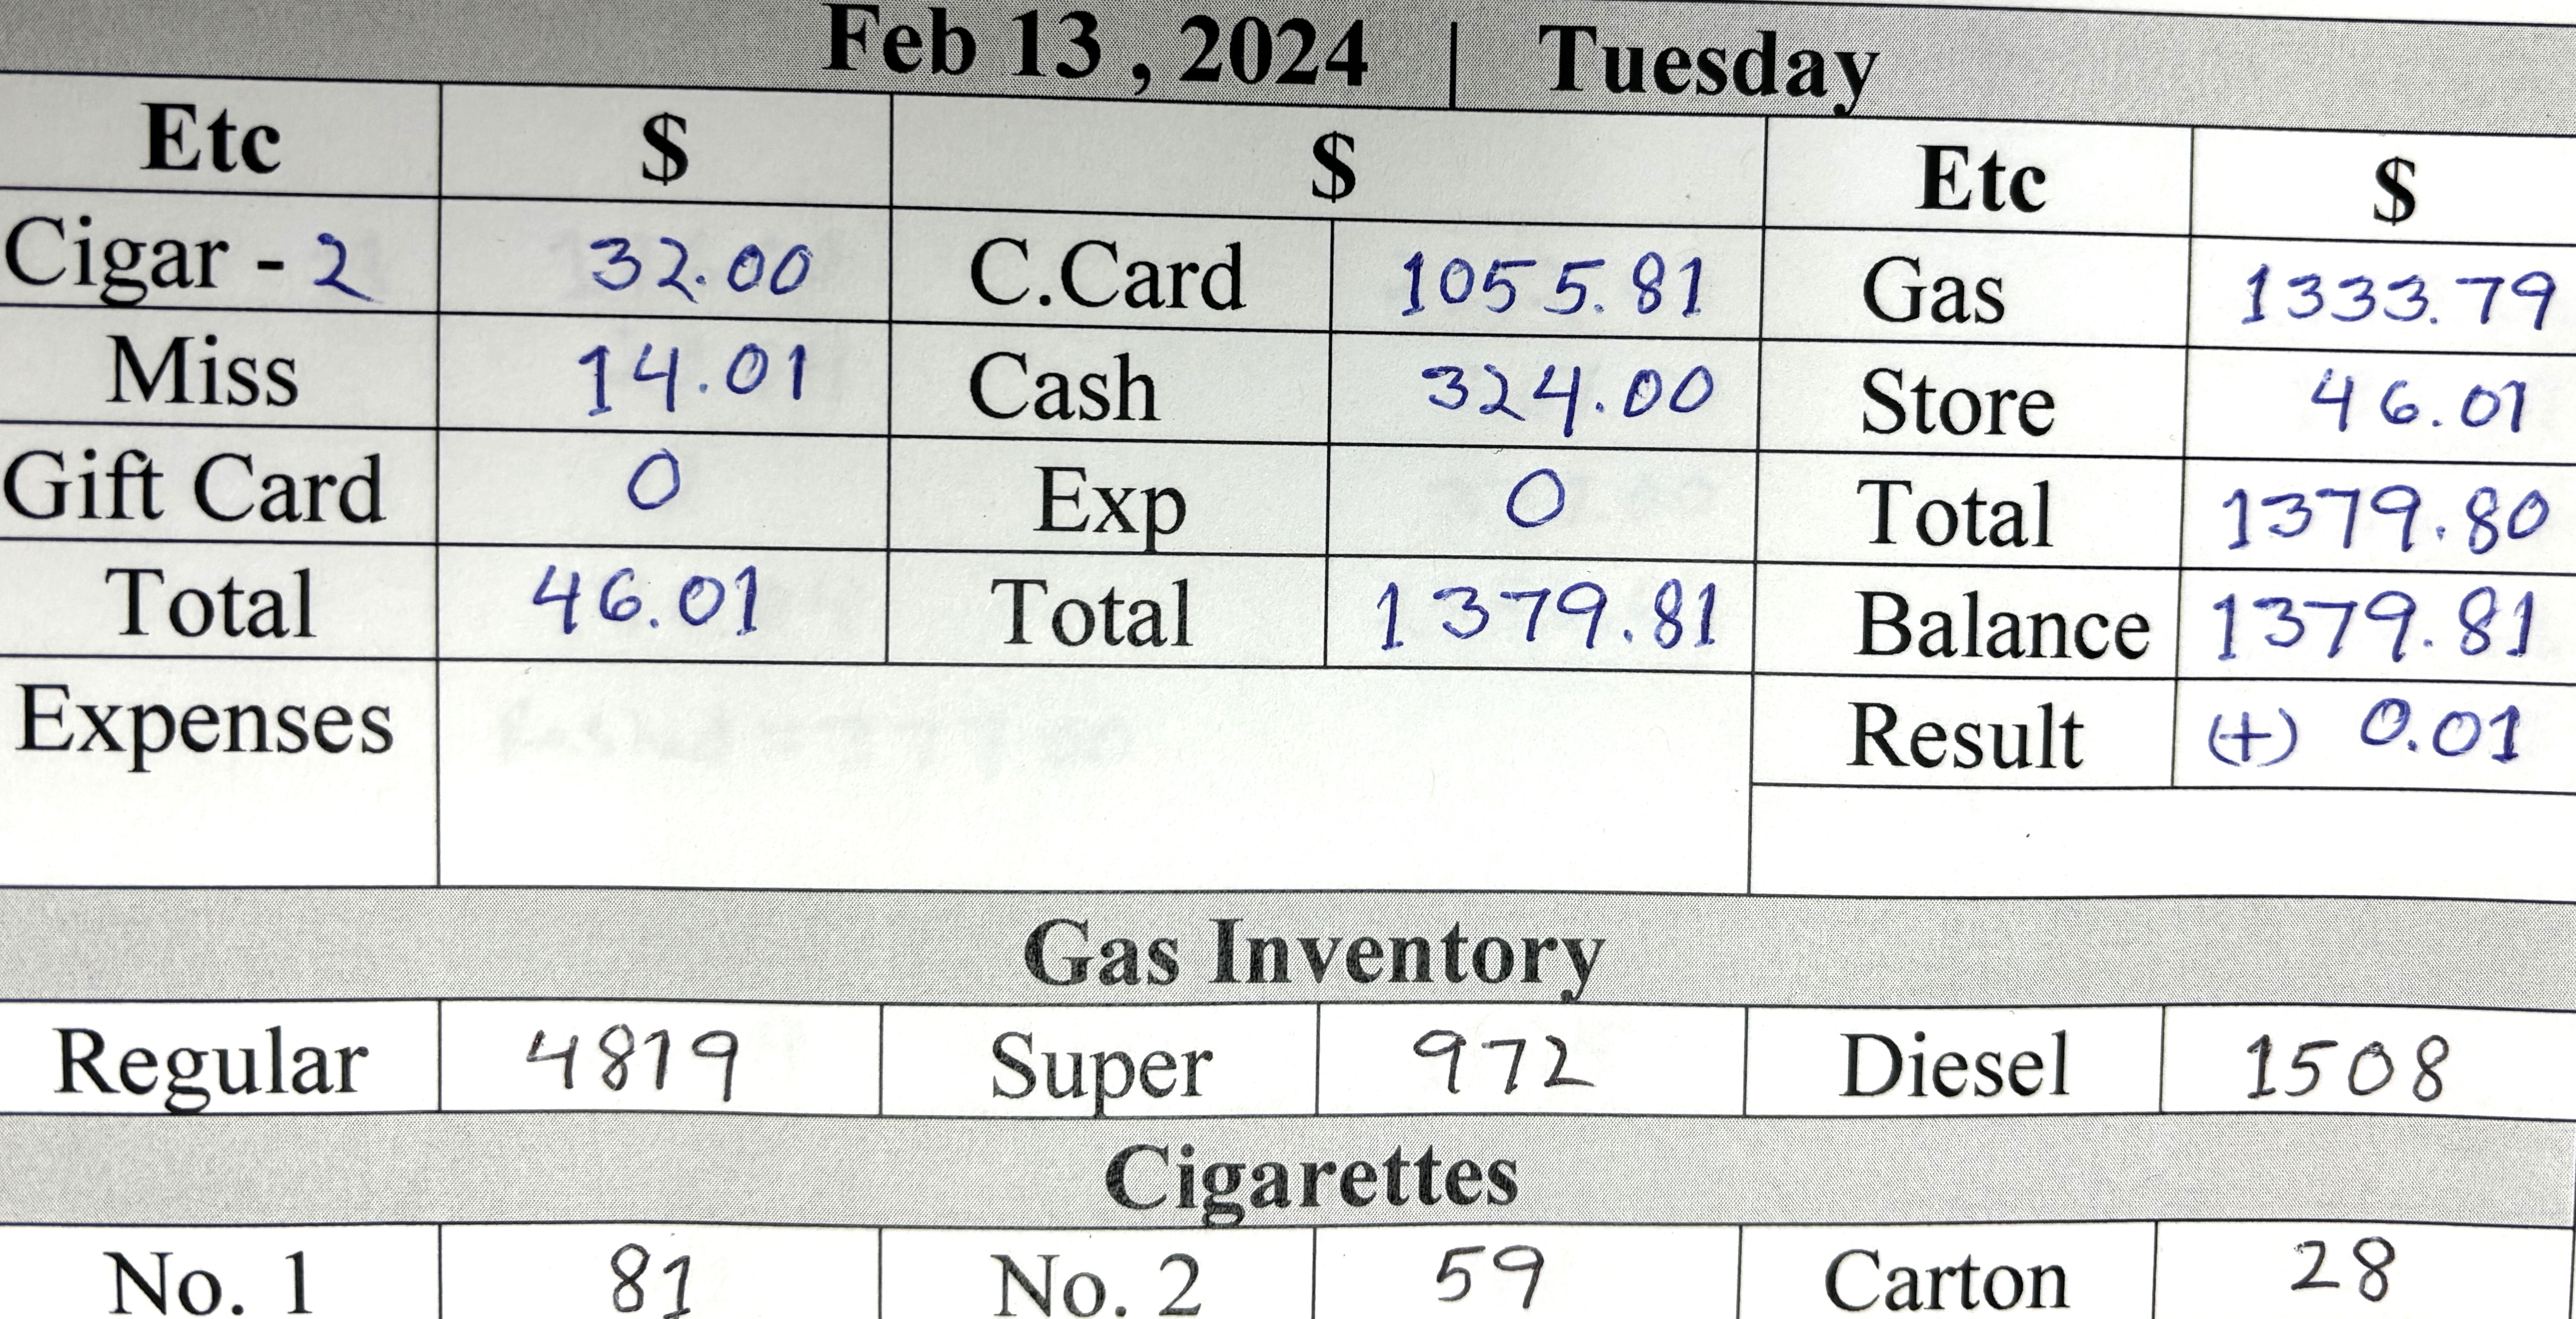 Feb 13 , 2024 | Tuesday
Etc $ $ Etc $
Cigar - 2 32.00 C.Card 1055.81 Gas 1333.79
Miss 14.01 Cash 324.00 Store 46.01
Gift Card 0 Exp 0 Total 1379.80
Total 46.01 Total 1379.81 Balance 1379.81
Expenses Result (+) 0.01
Gas Inventory
Regular 4819 Super 972 Diesel 1508
Cigarettes
No. 1 81 No. 2 59 Carton 28